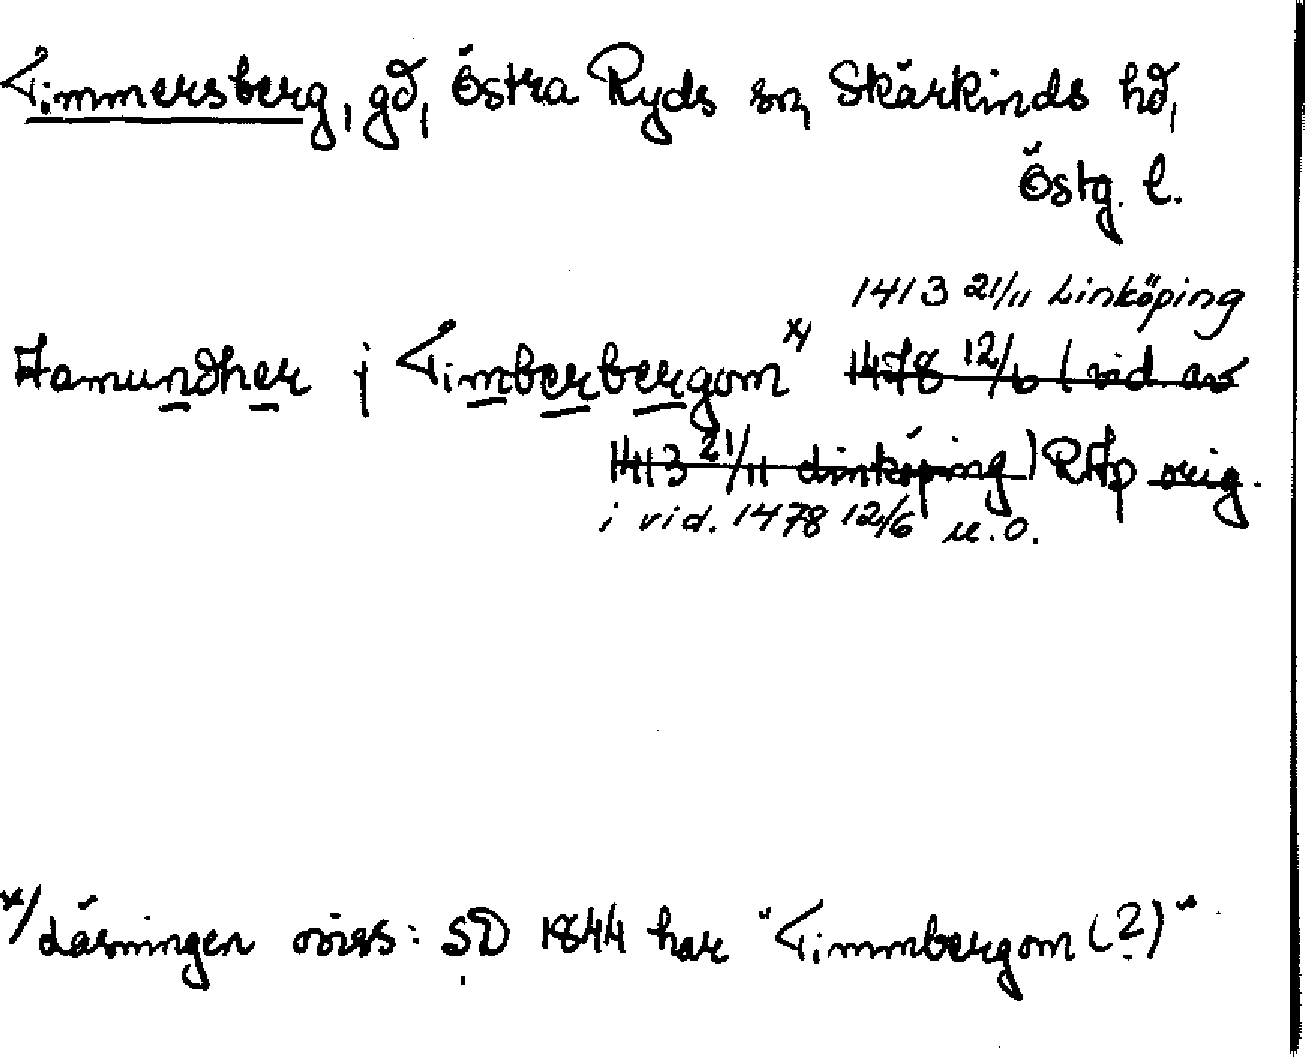 Timmersberg, gd, Östra Ryds sn, Skärkinds hd,
Östg. l.
1413 21/11 Linköping
Hamundher j Timberbergom x/ 1478 12/6 (vid av
1413 21/11 Linköping) RAp orig.
i vid. 1478 12/6 u.o.
x/ Läsningen oviss: SD 1844 har "Timmbergom (?)"